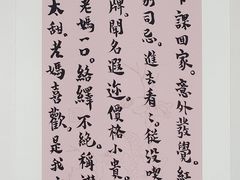 下課回家。意外發覺紅
的司忌。進去看看。從沒喫
牌。聞名遐迩。價格小貴。
老媽一口。絡繹不絕。稱讚
太甜。老媽喜歡。是我